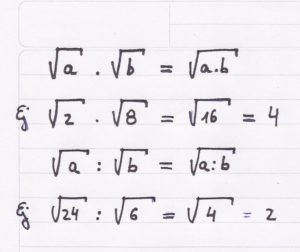 √a · √b = √a·b
Ej √2 · √8 = √16 = 4
√a : √b = √a:b
Ej √24 : √6 = √4 = 2